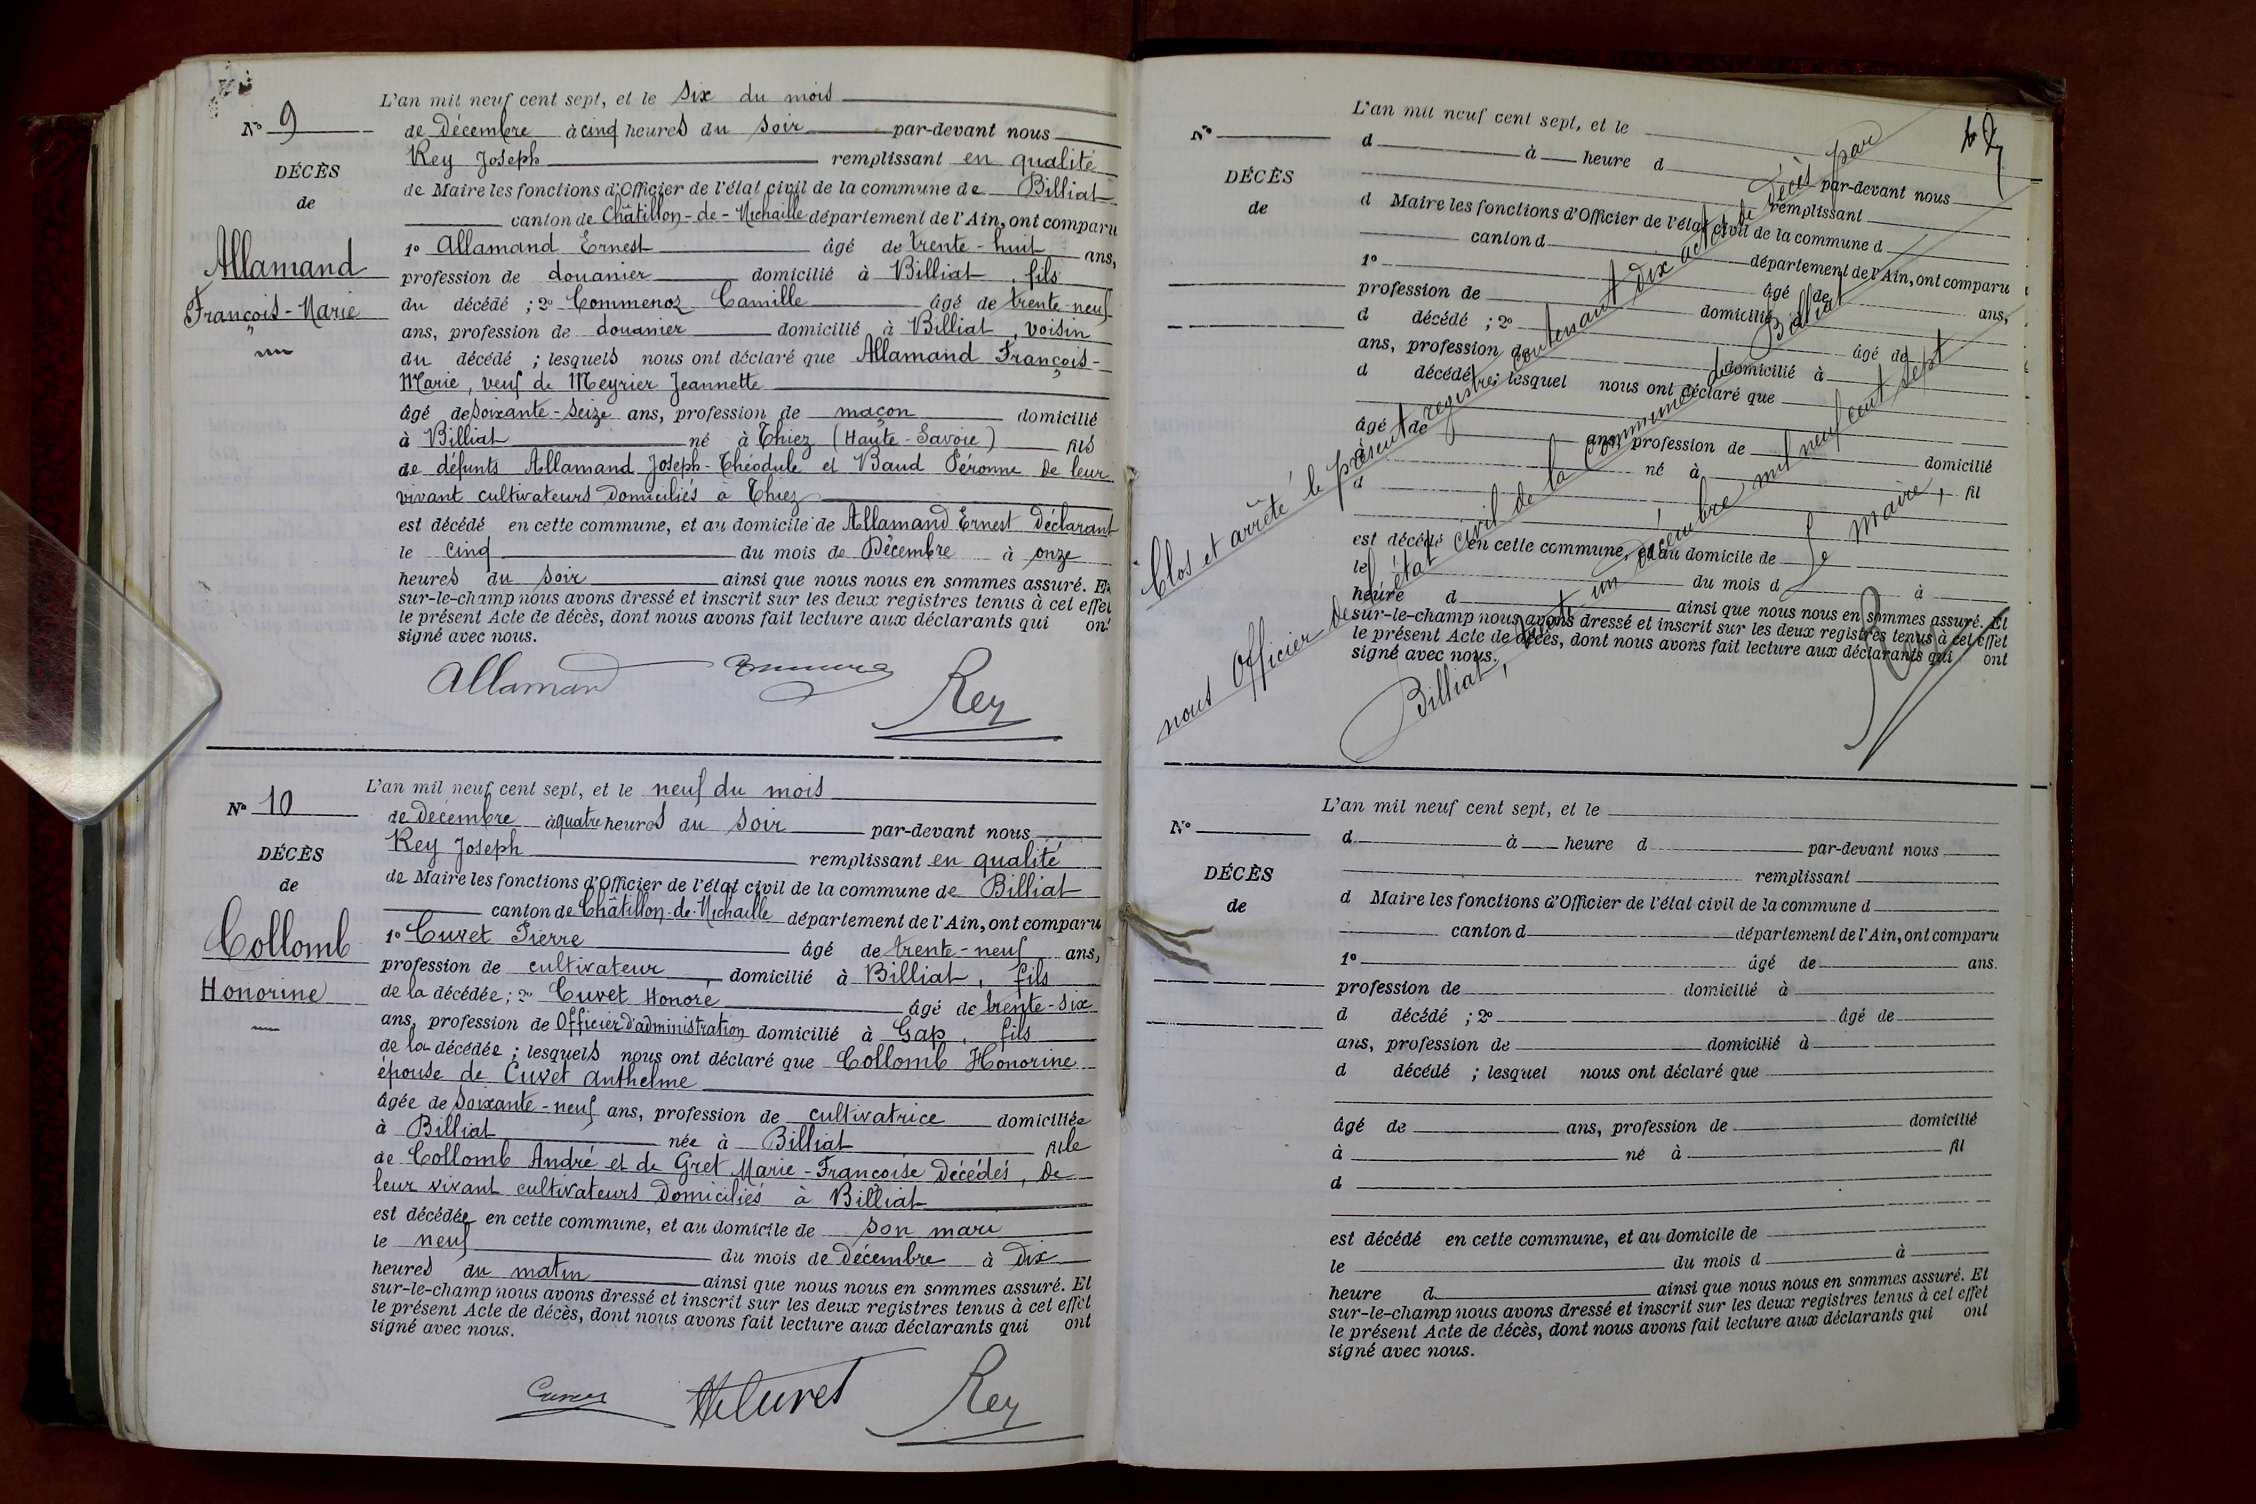 L'an mil neuf cent sept, et le six du mois
N° 9
de décembre à cinq heures du soir par-devant nous
Rey Joseph remplissant en qualité
DÉCÈS
de Maire les fonctions d'Officier de l'état civil de la commune de Billiat
de
canton de Châtillon-de-Michaille département de l'Ain, ont comparu
Allamand
1° Allamand Ernest âgé de trente-huit ans,
profession de douanier domicilié à Billiat, fils
François-Marie
du décédé ; 2° Commenoz Camille âgé de trente-neuf
ans, profession de douanier domicilié à Billiat, voisin
du décédé ; lesquels nous ont déclaré que Allamand François-
Marie, veuf de Meyrier Jeannette
âgé de soixante-seize ans, profession de maçon domicilié
à Billiat né à Thiez (Haute-Savoie) fils
de défunts Allamand Joseph-Théodule et Baud Péronne de leur
vivant cultivateurs domiciliés à Thiez
est décédé en cette commune, et au domicile de Allamand Ernest déclarant
le cinq du mois de Décembre à onze
heures du soir ainsi que nous nous en sommes assuré. Et
sur-le-champ nous avons dressé et inscrit sur les deux registres tenus à cet effet
le présent Acte de décès, dont nous avons fait lecture aux déclarants qui ont
signé avec nous.
Allamand
Rey
L'an mil neuf cent sept, et le neuf du mois
N° 10
de décembre à quatre heures du soir par-devant nous
Rey Joseph remplissant en qualité
DÉCÈS
de Maire les fonctions d'Officier de l'état civil de la commune de Billiat
de
canton de Châtillon-de-Michaille département de l'Ain, ont comparu
Collomb
1° Cuvet Pierre âgé de trente-neuf ans,
profession de cultivateur, domicilié à Billiat, fils
Honorine
de la décédée ; 2° Cuvet Honoré âgé de trente-six
ans, profession de Officier d'administration domicilié à Gap, fils
de la décédée ; lesquels nous ont déclaré que Collomb Honorine
épouse de Cuvet Anthelme
âgée de soixante-neuf ans, profession de cultivatrice domiciliée
à Billiat née à Billiat fille
de Collomb André et de Gret Marie-Françoise décédés, de
leur vivant cultivateurs domiciliés à Billiat
est décédée en cette commune, et au domicile de son mari
le neuf du mois de décembre à dix
heures du matin ainsi que nous nous en sommes assuré. Et
sur-le-champ nous avons dressé et inscrit sur les deux registres tenus à cet effet
le présent Acte de décès, dont nous avons fait lecture aux déclarants qui ont
signé avec nous.
Cuvet
H Cuvet
Rey
L'an mil neuf cent sept, et le
N°
d à heure d par-devant nous
remplissant
DÉCÈS
d Maire les fonctions d'Officier de l'état civil de la commune d
de
canton d département de l'Ain, ont comparu
1° âgé de ans,
profession de domicilié à
d décédé ; 2° âgé de
ans, profession de domicilié à
d décédé ; lesquel nous ont déclaré que
âgé de ans, profession de domicilié
à né à fil
d
est décédé en cette commune, et au domicile de
le du mois d à
heure d ainsi que nous nous en sommes assuré. Et
sur-le-champ nous avons dressé et inscrit sur les deux registres tenus à cet effet
le présent Acte de décès, dont nous avons fait lecture aux déclarants qui ont
signé avec nous.
Clos et arrêté le présent registre contenant dix actes de décès par
nous Officier de l'état civil de la Commune de Billiat
Billiat, trente un décembre mil neuf cent sept
Le maire,
Rey
L'an mil neuf cent sept, et le
N°
d à heure d par-devant nous
remplissant
DÉCÈS
d Maire les fonctions d'Officier de l'état civil de la commune d
de
canton d département de l'Ain, ont comparu
1° âgé de ans.
profession de domicilié à
d décédé ; 2° âgé de
ans, profession de domicilié à
d décédé ; lesquel nous ont déclaré que
âgé de ans, profession de domicilié
à né à fil
d
est décédé en cette commune, et au domicile de
le du mois d à
heure d ainsi que nous nous en sommes assuré. Et
sur-le-champ nous avons dressé et inscrit sur les deux registres tenus à cet effet
le présent Acte de décès, dont nous avons fait lecture aux déclarants qui ont
signé avec nous.